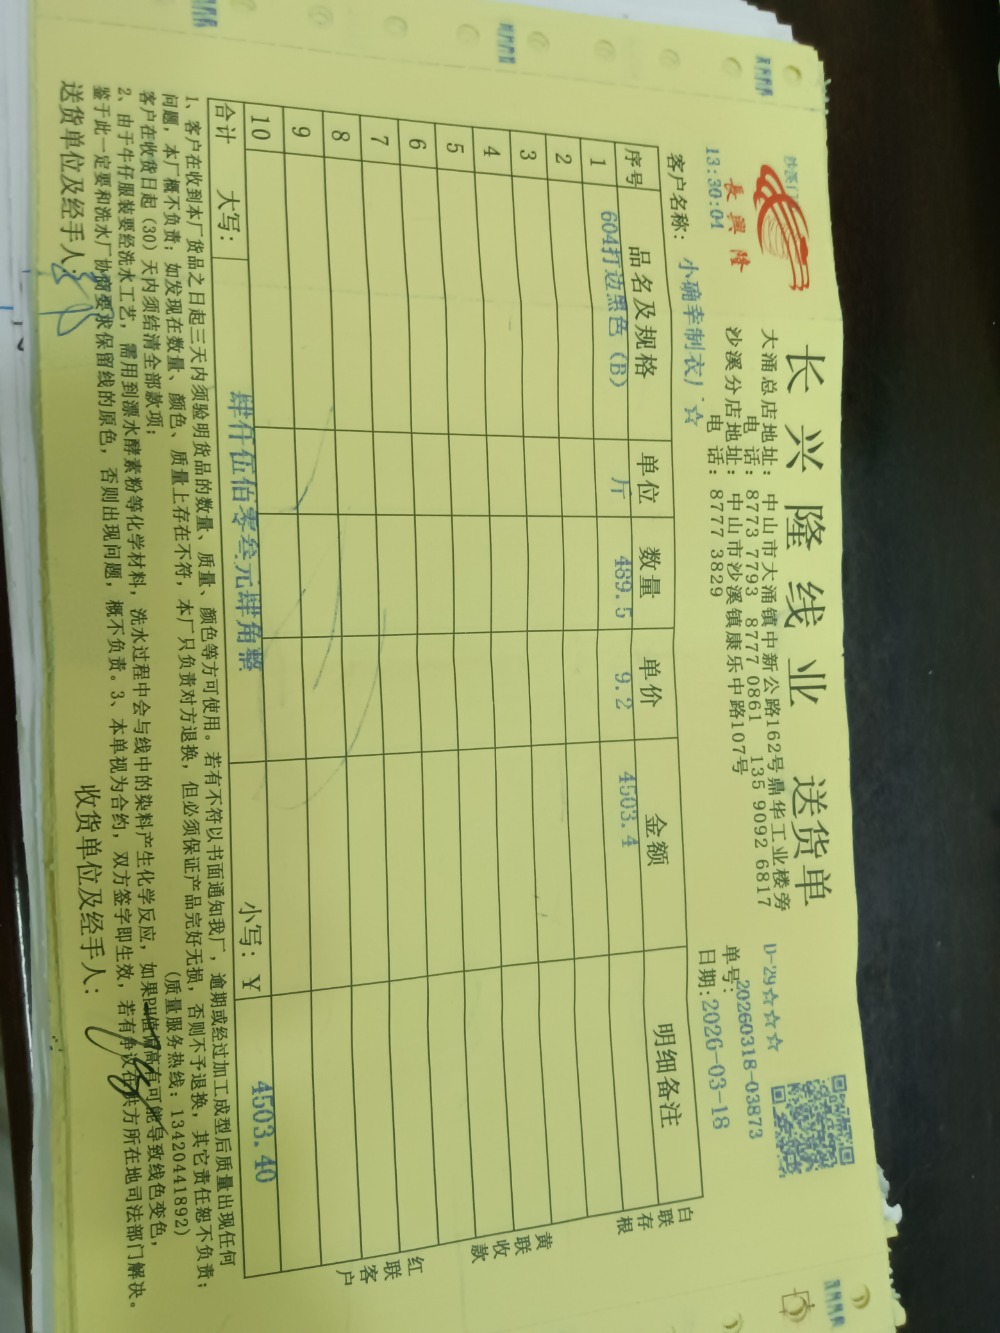 长兴隆线业 送货单
長興隆
大涌总店地址：中山市大涌镇中新公路162号鼎华工业楼旁
电 话：8773 7793 8777 0861 135 9092 6817
沙溪分店地址：中山市沙溪镇康乐中路107号
电 话：8777 3829
D-29☆☆☆
单号：20260318-03873
日期：2026-03-18
13:30:04
客户名称：小确幸制衣厂☆
序号 品名及规格 单位 数量 单价 金额 明细备注
1 604打边黑色（B） 斤 489.5 9.2 4503.4
2
3
4
5
6
7
8
9
10
合计 大写：肆仟伍佰零叁元肆角整 小写：￥ 4503.40
白联存根
黄联收款
红联客户
1、客户在收到本厂货品之日起三天内须验明货品的数量、质量、颜色等方可使用。若有不符以书面通知我厂，逾期或经过加工成型后质量出现任何
问题，本厂概不负责；如发现在数量、颜色、质量上存在不符，本厂只负责对方退换，但必须保证产品完好无损，否则不予退换，其它责任恕不负责；
客户在收货日起（30）天内须结清全部款项； （质量服务热线：13420441892）
2、由于牛仔服装要经洗水工艺，需用到漂水酵素粉等化学材料，洗水过程中会与线中的染料产生化学反应，如果PH值偏高有可能导致线色变色，
鉴于此一定要和洗水厂协商要求保留线的原色，否则出现问题，概不负责。3、本单视为合约，双方签字即生效，若有争议在供方所在地司法部门解决。
送货单位及经手人： 收货单位及经手人：